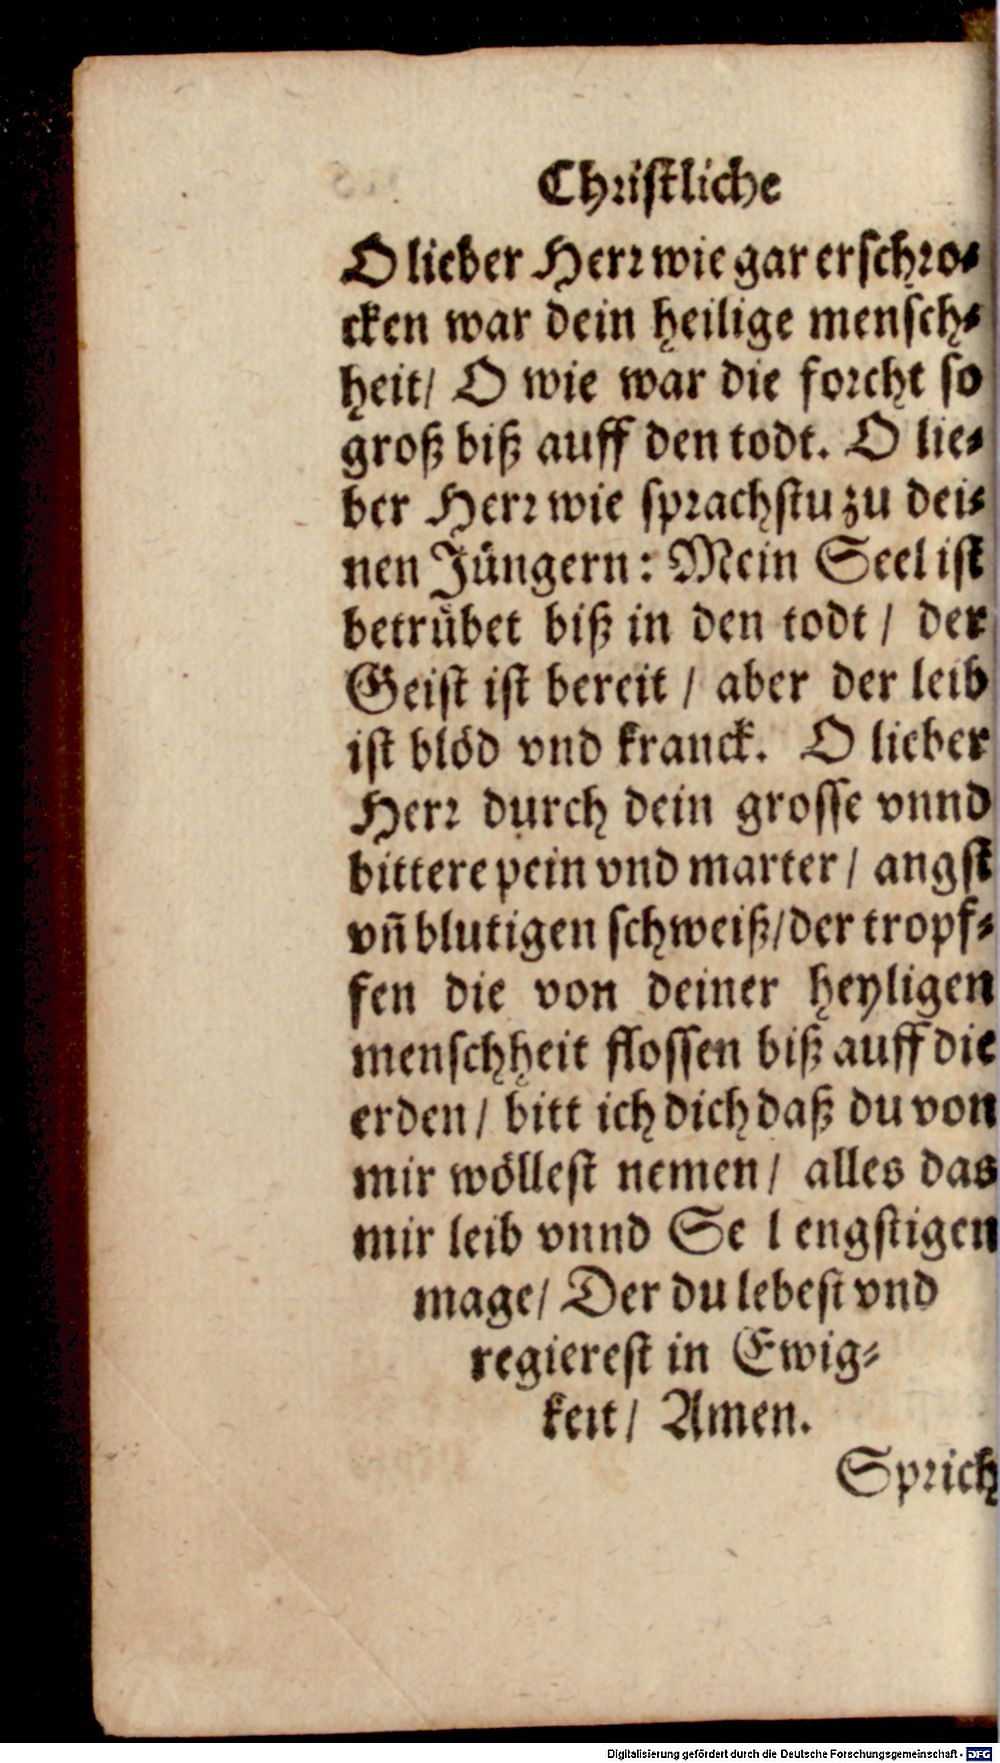 Christliche
O lieber Herr wie gar erschro⸗
cken war dein heilige mensch⸗
heit/ O wie war die forcht so
groß biß auff den todt. O lie⸗
ber Herr wie sprachstu zu dei⸗
nen Jüngern: Mein Seel ist
betrübet biß in den todt / der
Geist ist bereit / aber der leib
ist blöd vnd kranck. O lieber
Herr durch dein grosse vnnd
bittere pein vnd marter / angst
vñ blutigen schweiß/der tropf⸗
fen die von deiner heyligen
menschheit flossen biß auff die
erden / bitt ich dich daß du von
mir wöllest nemen / alles das
mir leib vnnd Se l engstigen
mage/ Der du lebest vnd
regierest in Ewig⸗
keit / Amen.
Sprich
Digitalisierung gefördert durch die Deutsche Forschungsgemeinschaft - DFG